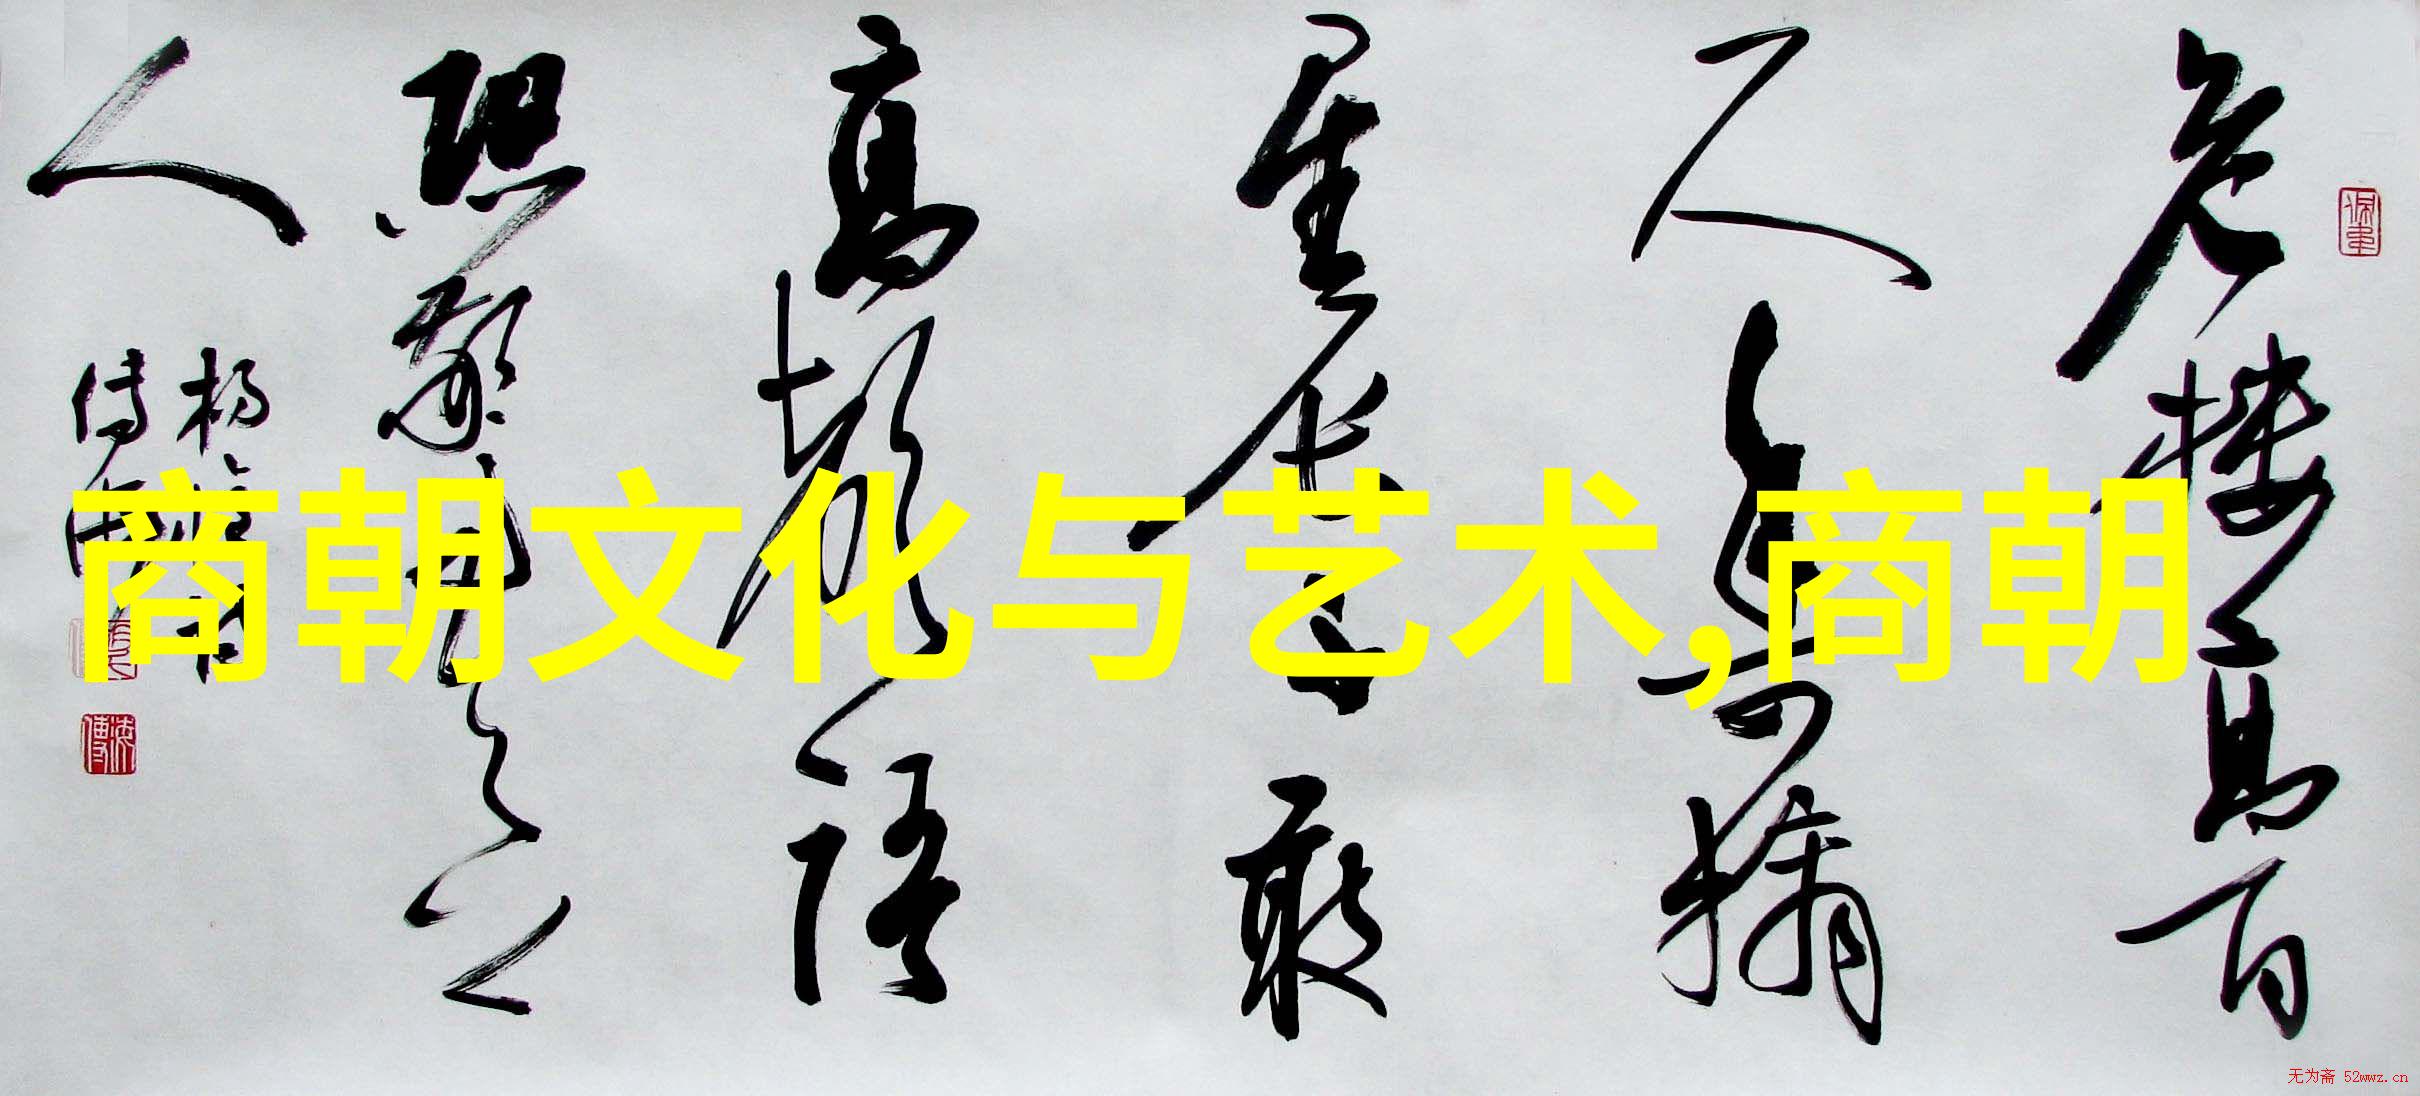 危樓高百
尺手可摘
星辰不敢
高聲語
恐驚天上
人
商朝文化与艺术,商朝
无为斋 52wwz.cn